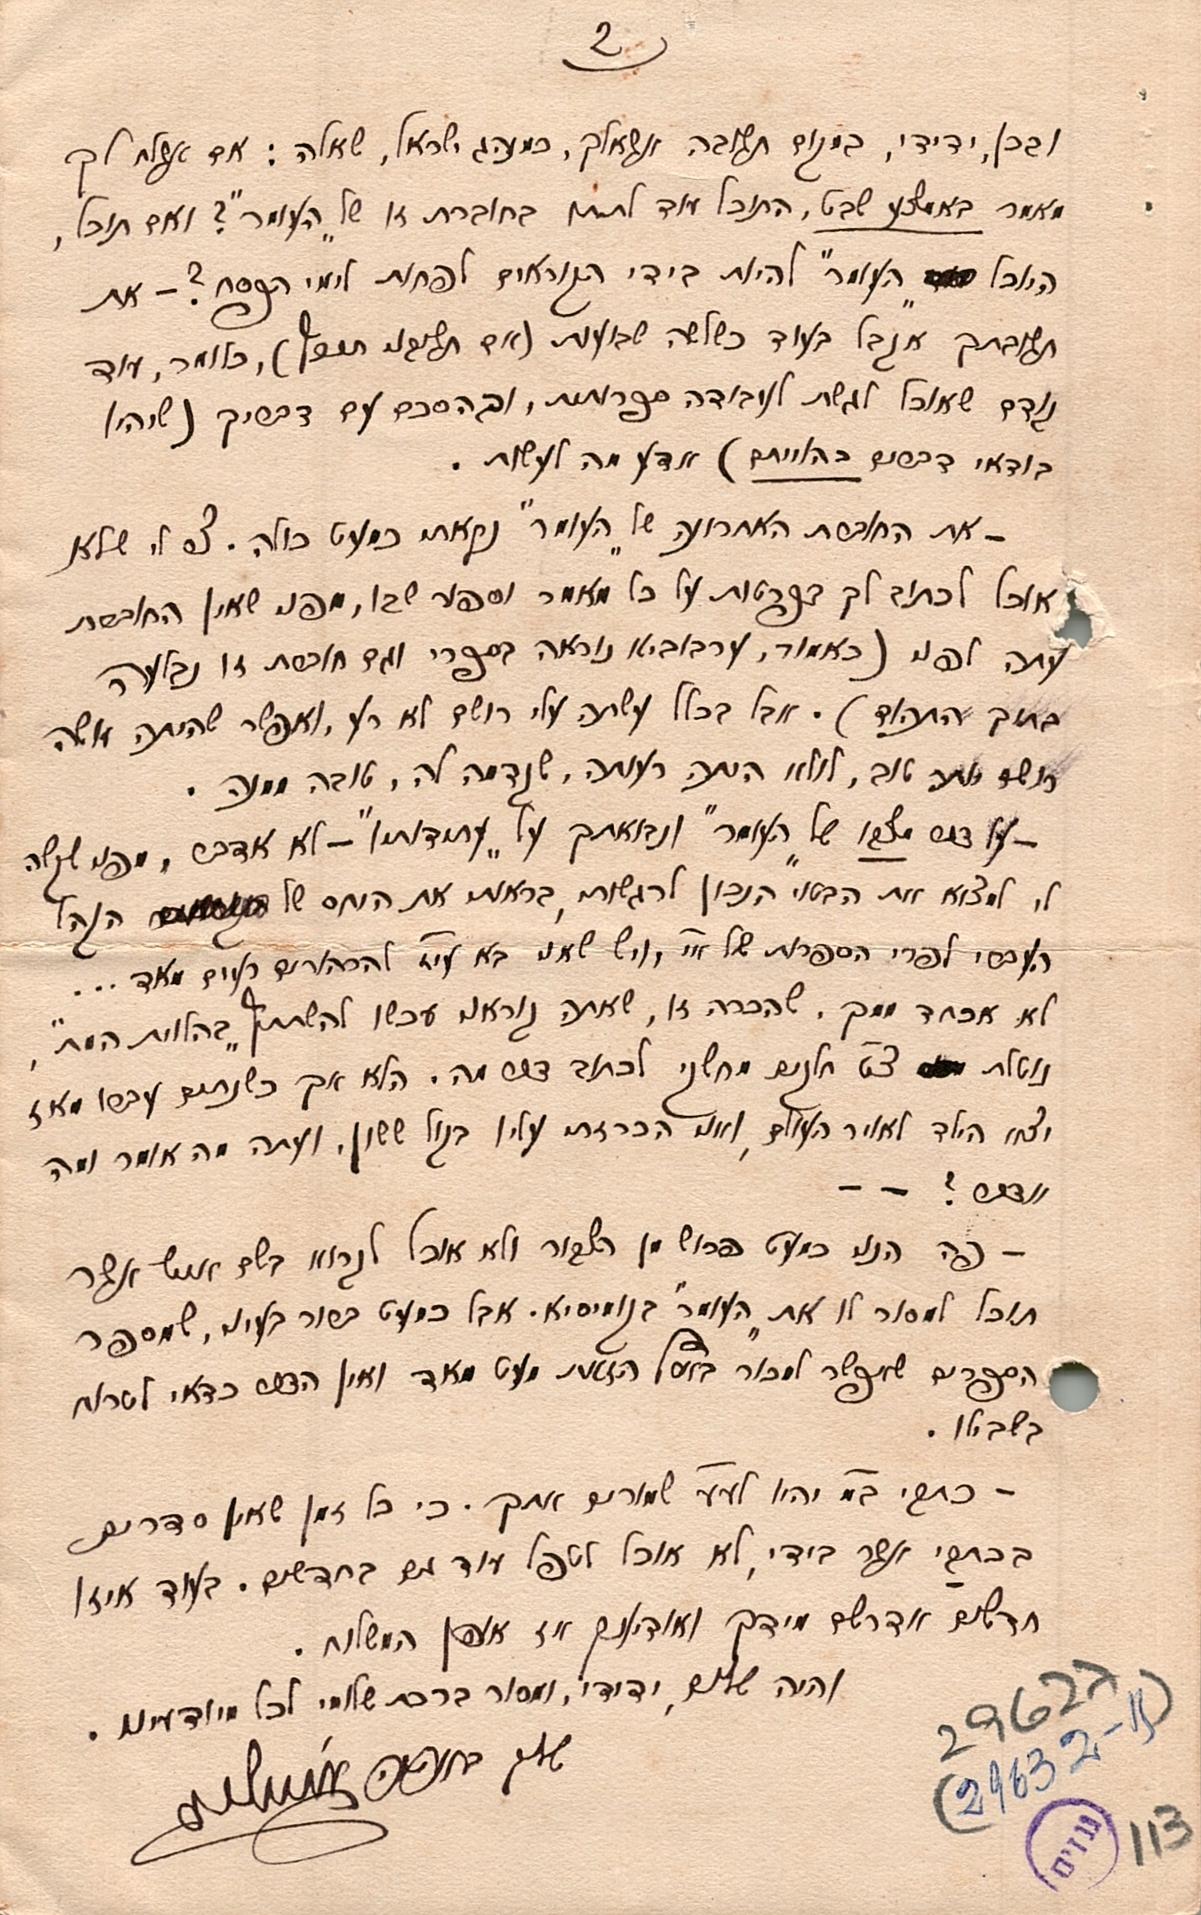 2
ובכן, ידידי, במקום תשובה אשאלך, כמנהג ישראל, שאלה: אם אשלח לך
מאמר באמצע שבט, התוכל עוד לתתו בחוברת זו של "העומר"? ואם תוכל,
היוכל "העומר" להיות בידי הקוראים לפחות לימי הפסח? – את
תשובתך אקבל בעוד כשלשה שבועות (אם תשיבני תכף), כלומר, עוד
קודם שאוכל לגשת לעבודה ספרותית, ובהסכם עם דבריך (שיהיו
בודאי דברים כהוייתם) אדע מה לעשות.
– את החוברת האחרונה של "העומר" קראתי כמעט כולה. צר לי שלא
אוכל לכתוב לך בפרטות על כל מאמר וספור שבו, מפני שאין החוברת
עתה לפני (כאמור, ערבוביא נוראה בספרי וגם חוברת זו נבלעה
בתוך התהו). אבל בכלל עשתה עלי רושם לא רע, ואפשר שהיתה עושה
רושם יותר טוב, לולא היתה רעותה, שקדמה לה, טובה ממנה.
– על דבר מצבו של "העומר" ונבואתך על "עתידותיו" – לא אדבר, מפני שקשה
לי למצוא את הבטוי הנכון לרגשותי, בראותי את היחס של הקהל
העברי לפרי הספרות של א"י, ויש שאני בא עי"ז להרהורים רעים מאד...
לא אכחד ממך, שהכרה זו, שאתה קוראני עכשו להשתתף "בהלוית המת",
נוטלת חלקים מחשקי לכתוב דבר מה. הלא אך כשנתים עברו מאז
יצא הילד לאויר העולם, ואני הכרזתי עליו בקול ששון, ועתה מה אומר ומה
אדבר? – –
– פה הנני כמעט פרוש מן הצבור ולא אוכל לקרוא בשם איש אשר
תוכל למסור לו את "העומר" בקומיסיא. אבל כמעט ברור בעיני, שמספר
הספרים שאפשר למכור הזאת מעט מאד ואין הדבר כדאי לטרוח
בשבילו.
– כתבי במ יהיו לע"ע שמורים אתך. כי כל זמן שאין סדרים
בכתבי אשר בידי, לא אוכל לטפל עוד גם בחדשים. בעוד איזו
חדשים אדרשם מידך ואודיעך אז אופן המשלוח.
והיה שלום, ידידי, ומסור ברכת שלומי לכל מיודעינו.
שלך
גנזים
113